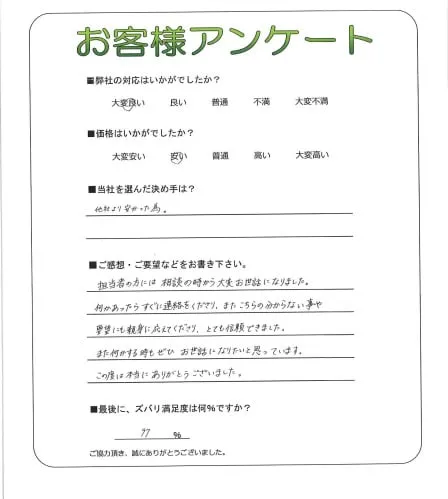 お客様アンケート
■弊社の対応はいかがでしたか？
大変良い 良い 普通 不満 大変不満
■価格はいかがでしたか？
大変安い 安い 普通 高い 大変高い
■当社を選んだ決め手は？
他社より安かった為。
■ご感想・ご要望などをお書き下さい。
担当者の方には相談の時から大変お世話になりました。
何かあったらすぐに連絡をくださり、またこちらの分からない事や
要望にも親身に応えてくださり、とても信頼できました。
また何かする時もぜひ お世話になりたいと思っています。
この度は本当にありがとうございました。
■最後に、ズバリ満足度は何％ですか？
97 ％
ご協力頂き、誠にありがとうございました。